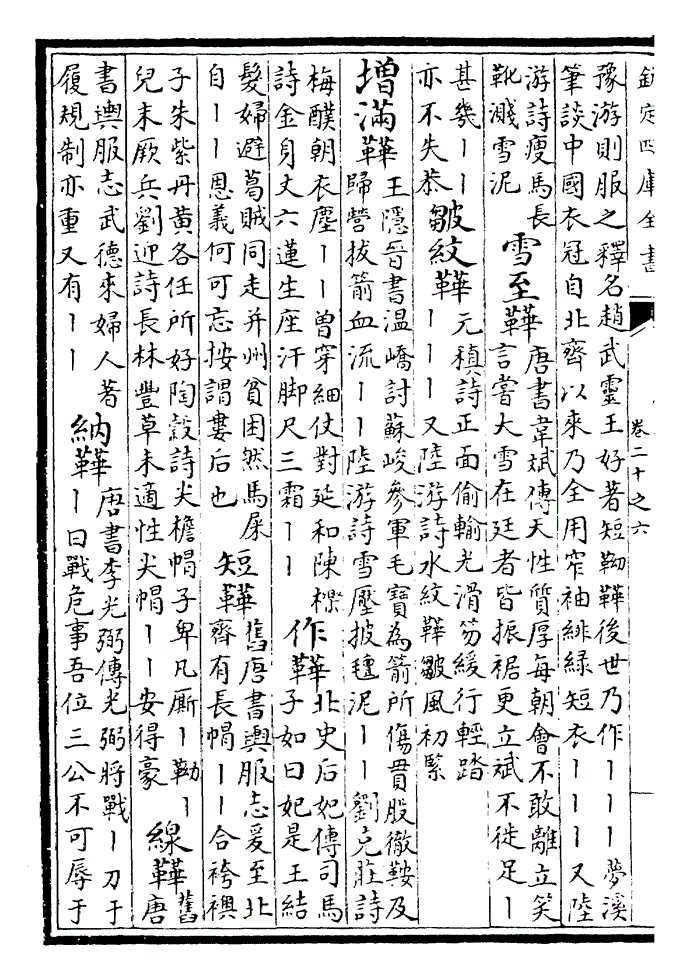 欽定四庫全書
卷二十之六
豫游則服之釋名趙武靈王好著短靿鞾後世乃作丨丨丨夢溪
筆談中國衣冠自北齊以來乃全用窄袖緋綠短衣丨丨丨又陸
游詩瘦馬長
靴濺雪泥
雪至鞾
唐書韋斌傳天性質厚每朝會不敢離立笑
言嘗大雪在廷者皆振裾更立斌不徙足丨
甚幾丨丨
亦不失恭
皺紋鞾
元稹詩正面偷輸光滑笏緩行輕踏
丨丨丨又陸游詩水紋鞾皺風初緊
增滿鞾
王隱晉書温嶠討蘇峻參軍毛寶為箭所傷貫股徹鞍及
歸營拔箭血流丨丨陸游詩雪壓披氊泥丨丨劉克莊詩
梅醭朝衣塵丨丨曽穿細仗對延和陳櫟
詩金身丈六蓮生座汗脚尺三霜丨丨
作鞾
北史后妃傳司馬
子如曰妃是王結
髮婦避葛賊同走并州貧困然馬屎
自丨丨恩義何可忘按謂婁后也
短鞾
舊唐書輿服志爰至北
齊有長帽丨丨合袴襖
子朱紫丹黄各任所好陶穀詩尖檐帽子卑凡廝丨靿丨
兒末厥兵劉迎詩長林豐草未適性尖帽丨丨安得豪
線鞾
舊
唐
書輿服志武德來婦人著
履規制亦重又有丨丨
納鞾
唐書李光弼傳光弼將戰丨刀于
丨曰戰危事吾位三公不可辱于